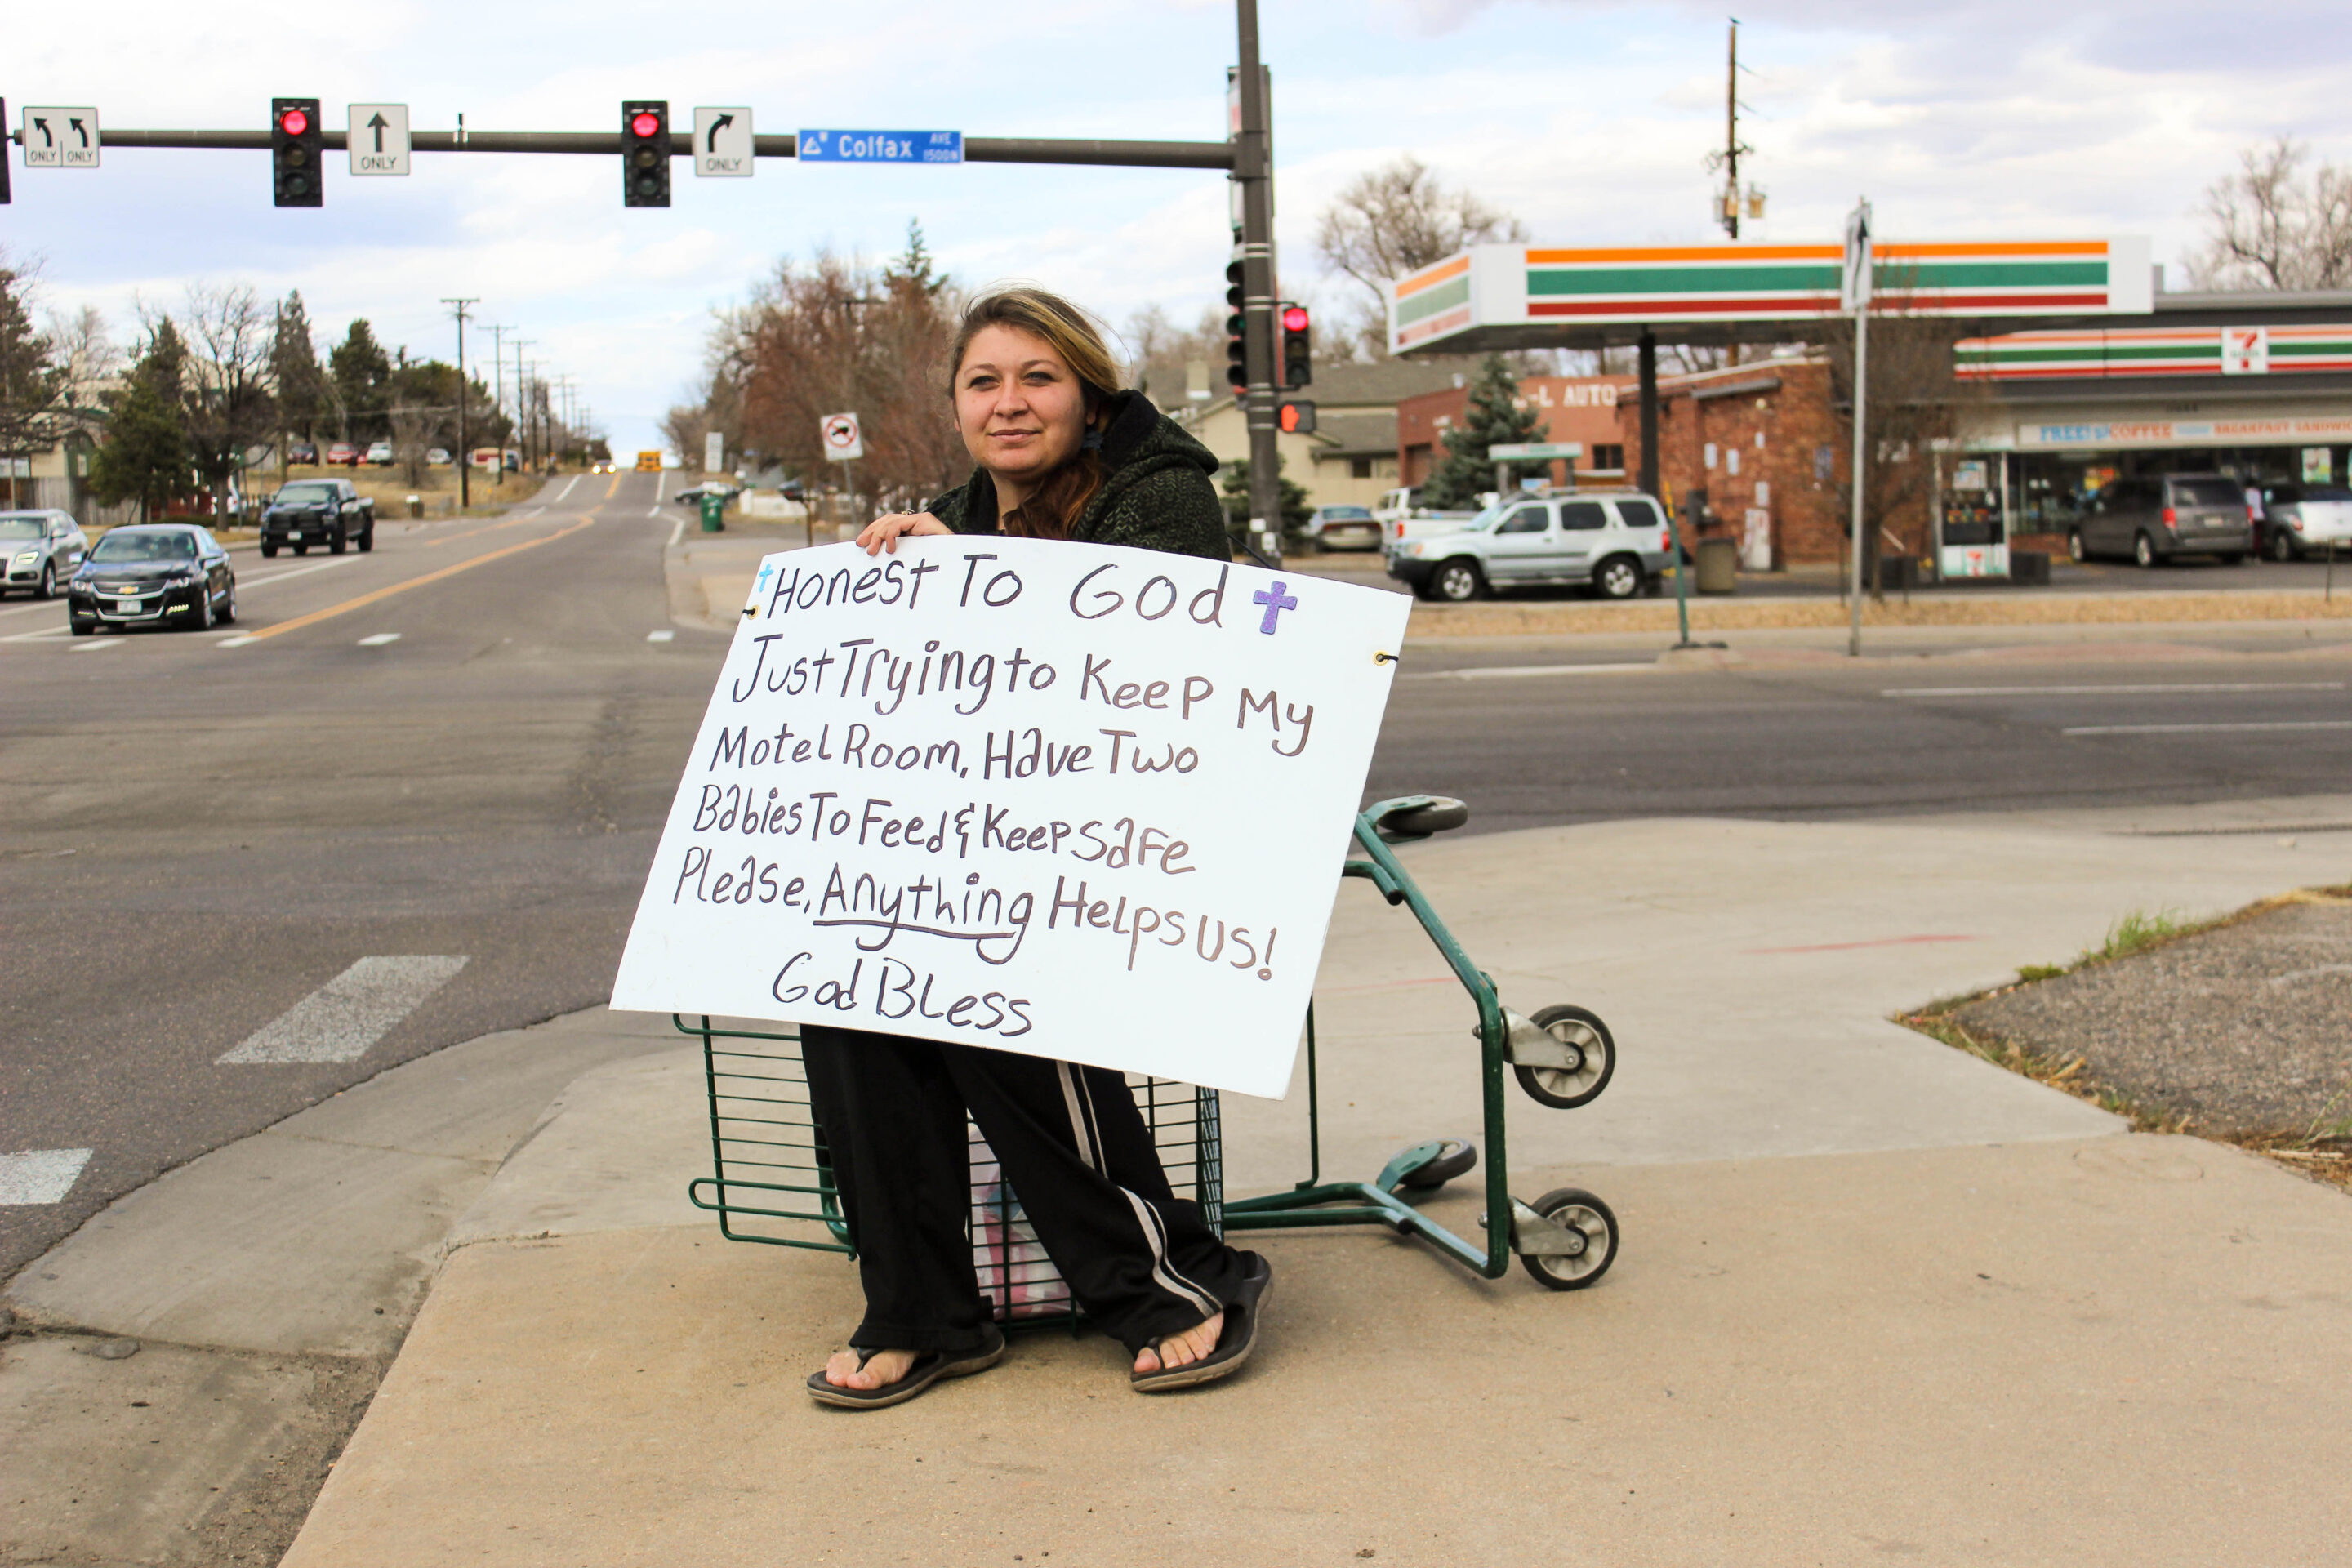 ONLY ONLY
ONLY
ONLY
W Colfax AVE
1500N
L AUTO
7
FREE! COFFEE BREAKFAST SANDWIC
Honest To God
Just Trying to Keep My
Motel Room, Have Two
Babies To Feed & Keep Safe
Please, Anything Helps US!
God Bless